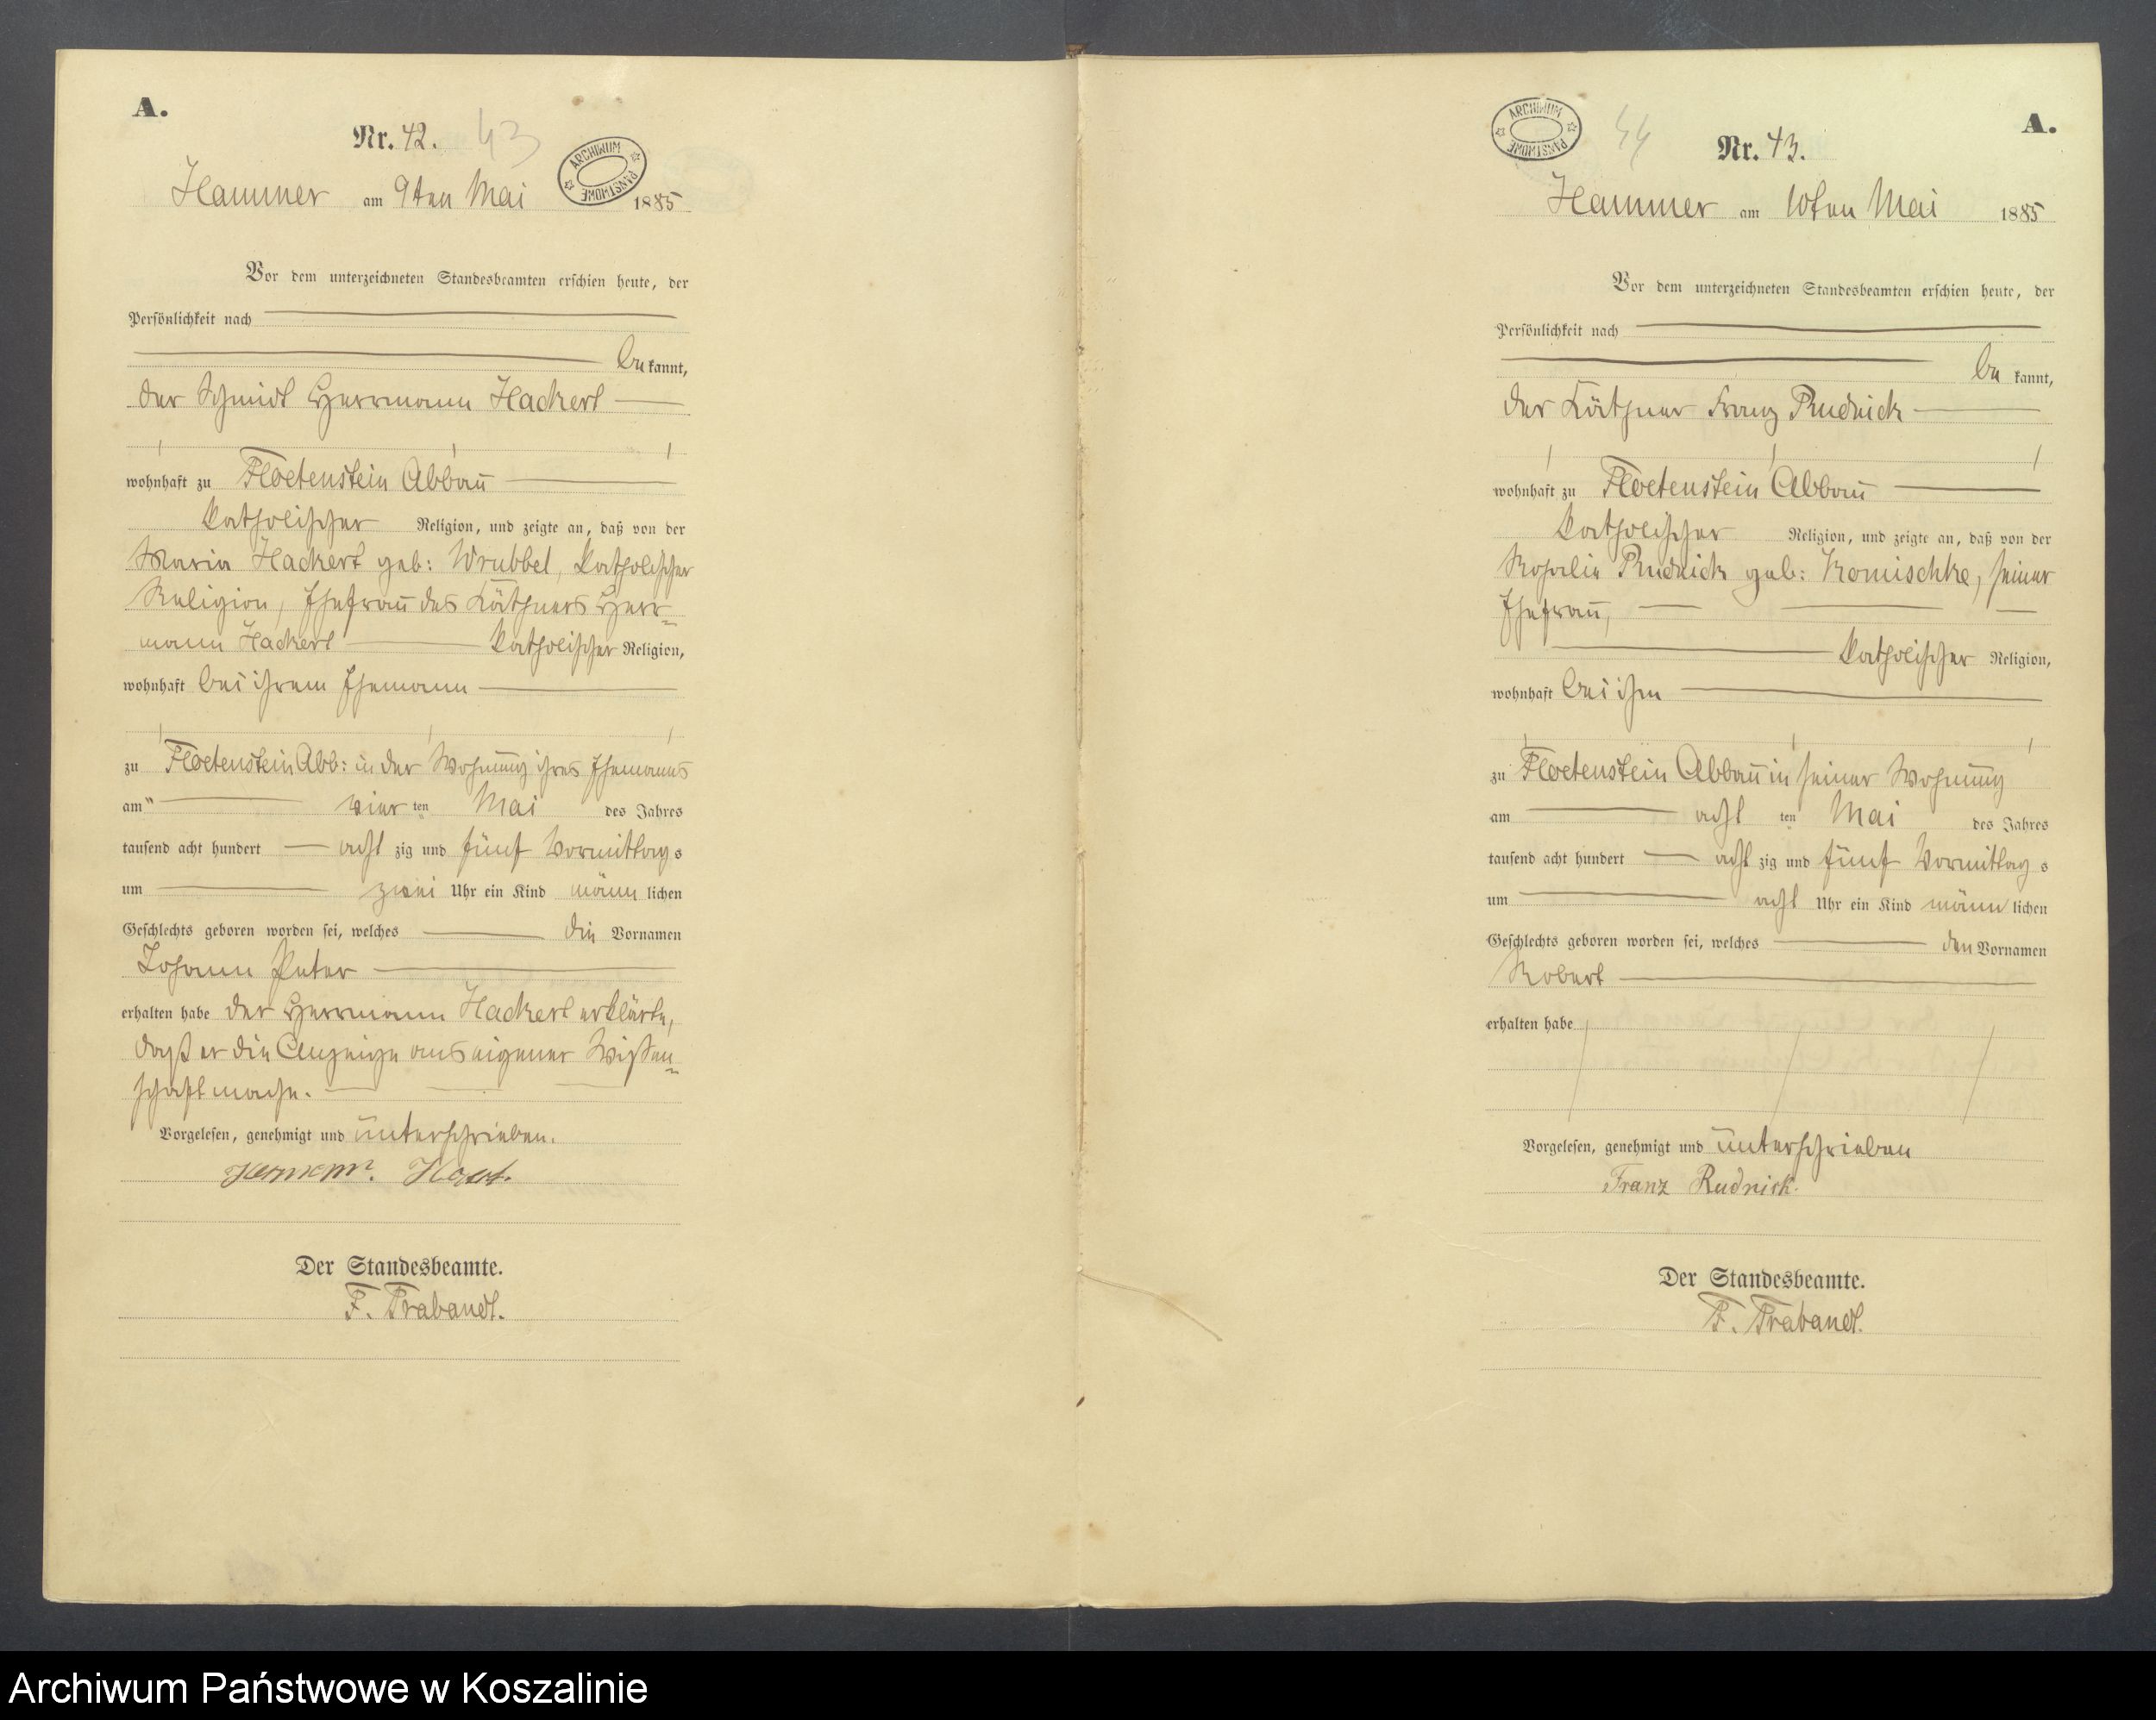 A.
Nr. 42.
43
ARCHIWUM PAŃSTWOWE
Hammer am 9ten Mai 1885
Vor dem unterzeichneten Standesbeamten erschien heute, der
Persönlichkeit nach
be kannt,
der Schmidt Herrmann Hackert
wohnhaft zu Floetenstein Abbau
katholischer Religion, und zeigte an, daß von der
Maria Hackert geb: Wrubbel, katholischer
Religion, Ehefrau des Käthners Herr=
mann Hackert katholischer Religion,
wohnhaft bei ihrem Ehemann
zu Floetenstein Abb: in der Wohnung ihres Ehemanns
am vier ten Mai des Jahres
tausend acht hundert acht zig und fünf Vormittag s
um zwei Uhr ein Kind männ lichen
Geschlechts geboren worden sei, welches die Vornamen
Johann Peter
erhalten habe der Herrmann Hackert erklärte,
daß er die Anzeige aus eigener Wißen=
schaft mache.
Vorgelesen, genehmigt und unterschrieben.
Der Standesbeamte.
F. Trabandt.
A.
ARCHIWUM PAŃSTWOWE
44
Nr. 43.
Hammer am 10ten Mai 1885
Vor dem unterzeichneten Standesbeamten erschien heute, der
Persönlichkeit nach
be kannt,
der Käthner Franz Rudnick
wohnhaft zu Floetenstein Abbau
katholischer Religion, und zeigte an, daß von der
Rosalie Rudnick geb: Komischke, seiner
Ehefrau,
katholischer Religion,
wohnhaft bei ihm
zu Floetenstein Abbau in seiner Wohnung
am acht ten Mai des Jahres
tausend acht hundert acht zig und fünf Vormittag s
um acht Uhr ein Kind männ lichen
Geschlechts geboren worden sei, welches den Vornamen
Robert
erhalten habe
Vorgelesen, genehmigt und unterschrieben
Franz Rudnick.
Der Standesbeamte.
F. Trabandt.
Archiwum Państwowe w Koszalinie